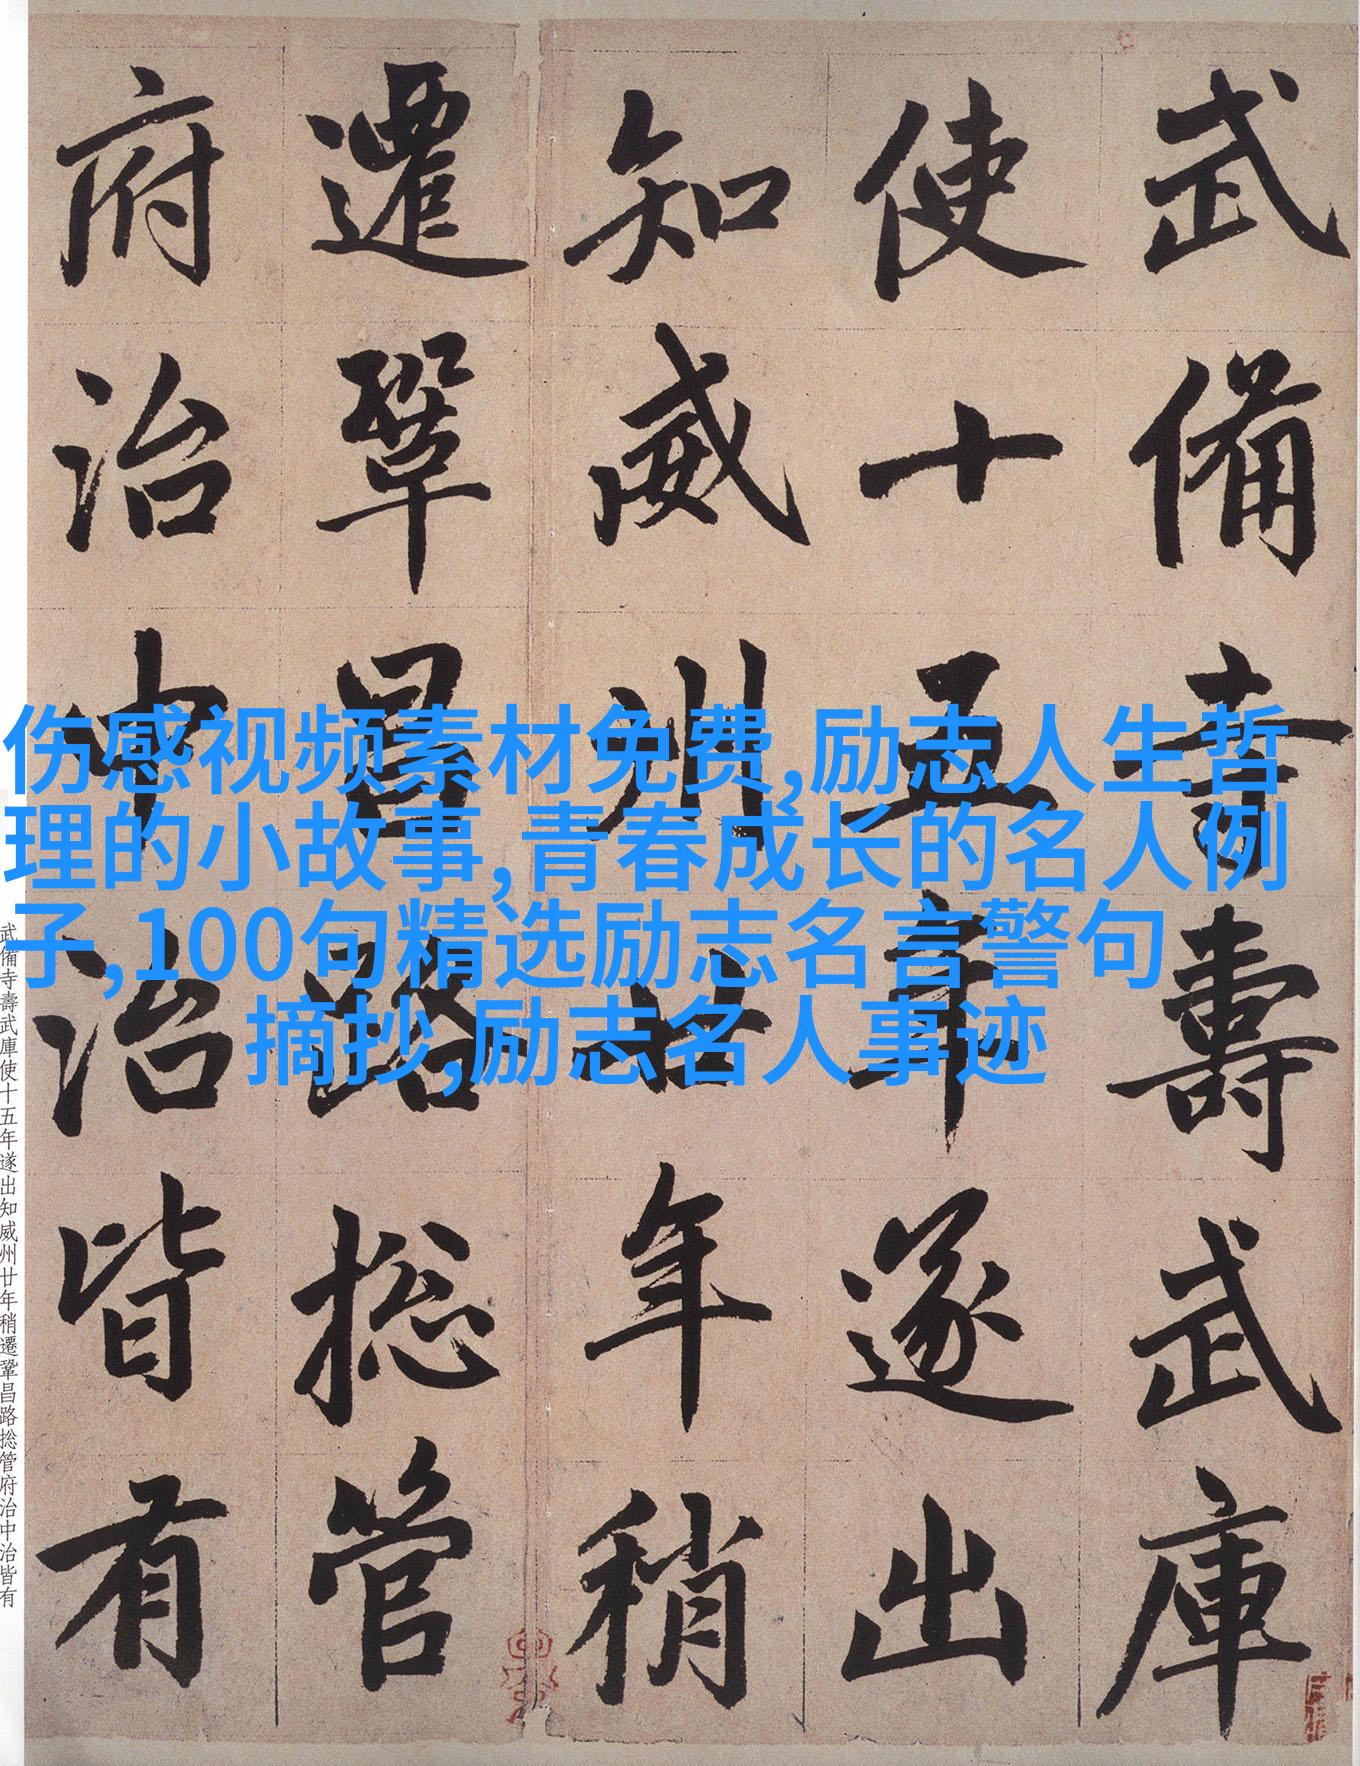 武備寺壽武庫
使十五年遂出
知威州廿年稍
遷鞏昌路捴管
府治中治皆有
伤感视频素材免费,励志人生哲
理的小故事,青春成长的名人例
子,100句精选励志名言警句
摘抄,励志名人事迹
武備寺壽武庫使十五年遂出知威州廿年稍遷鞏昌路捴管府治中治皆有